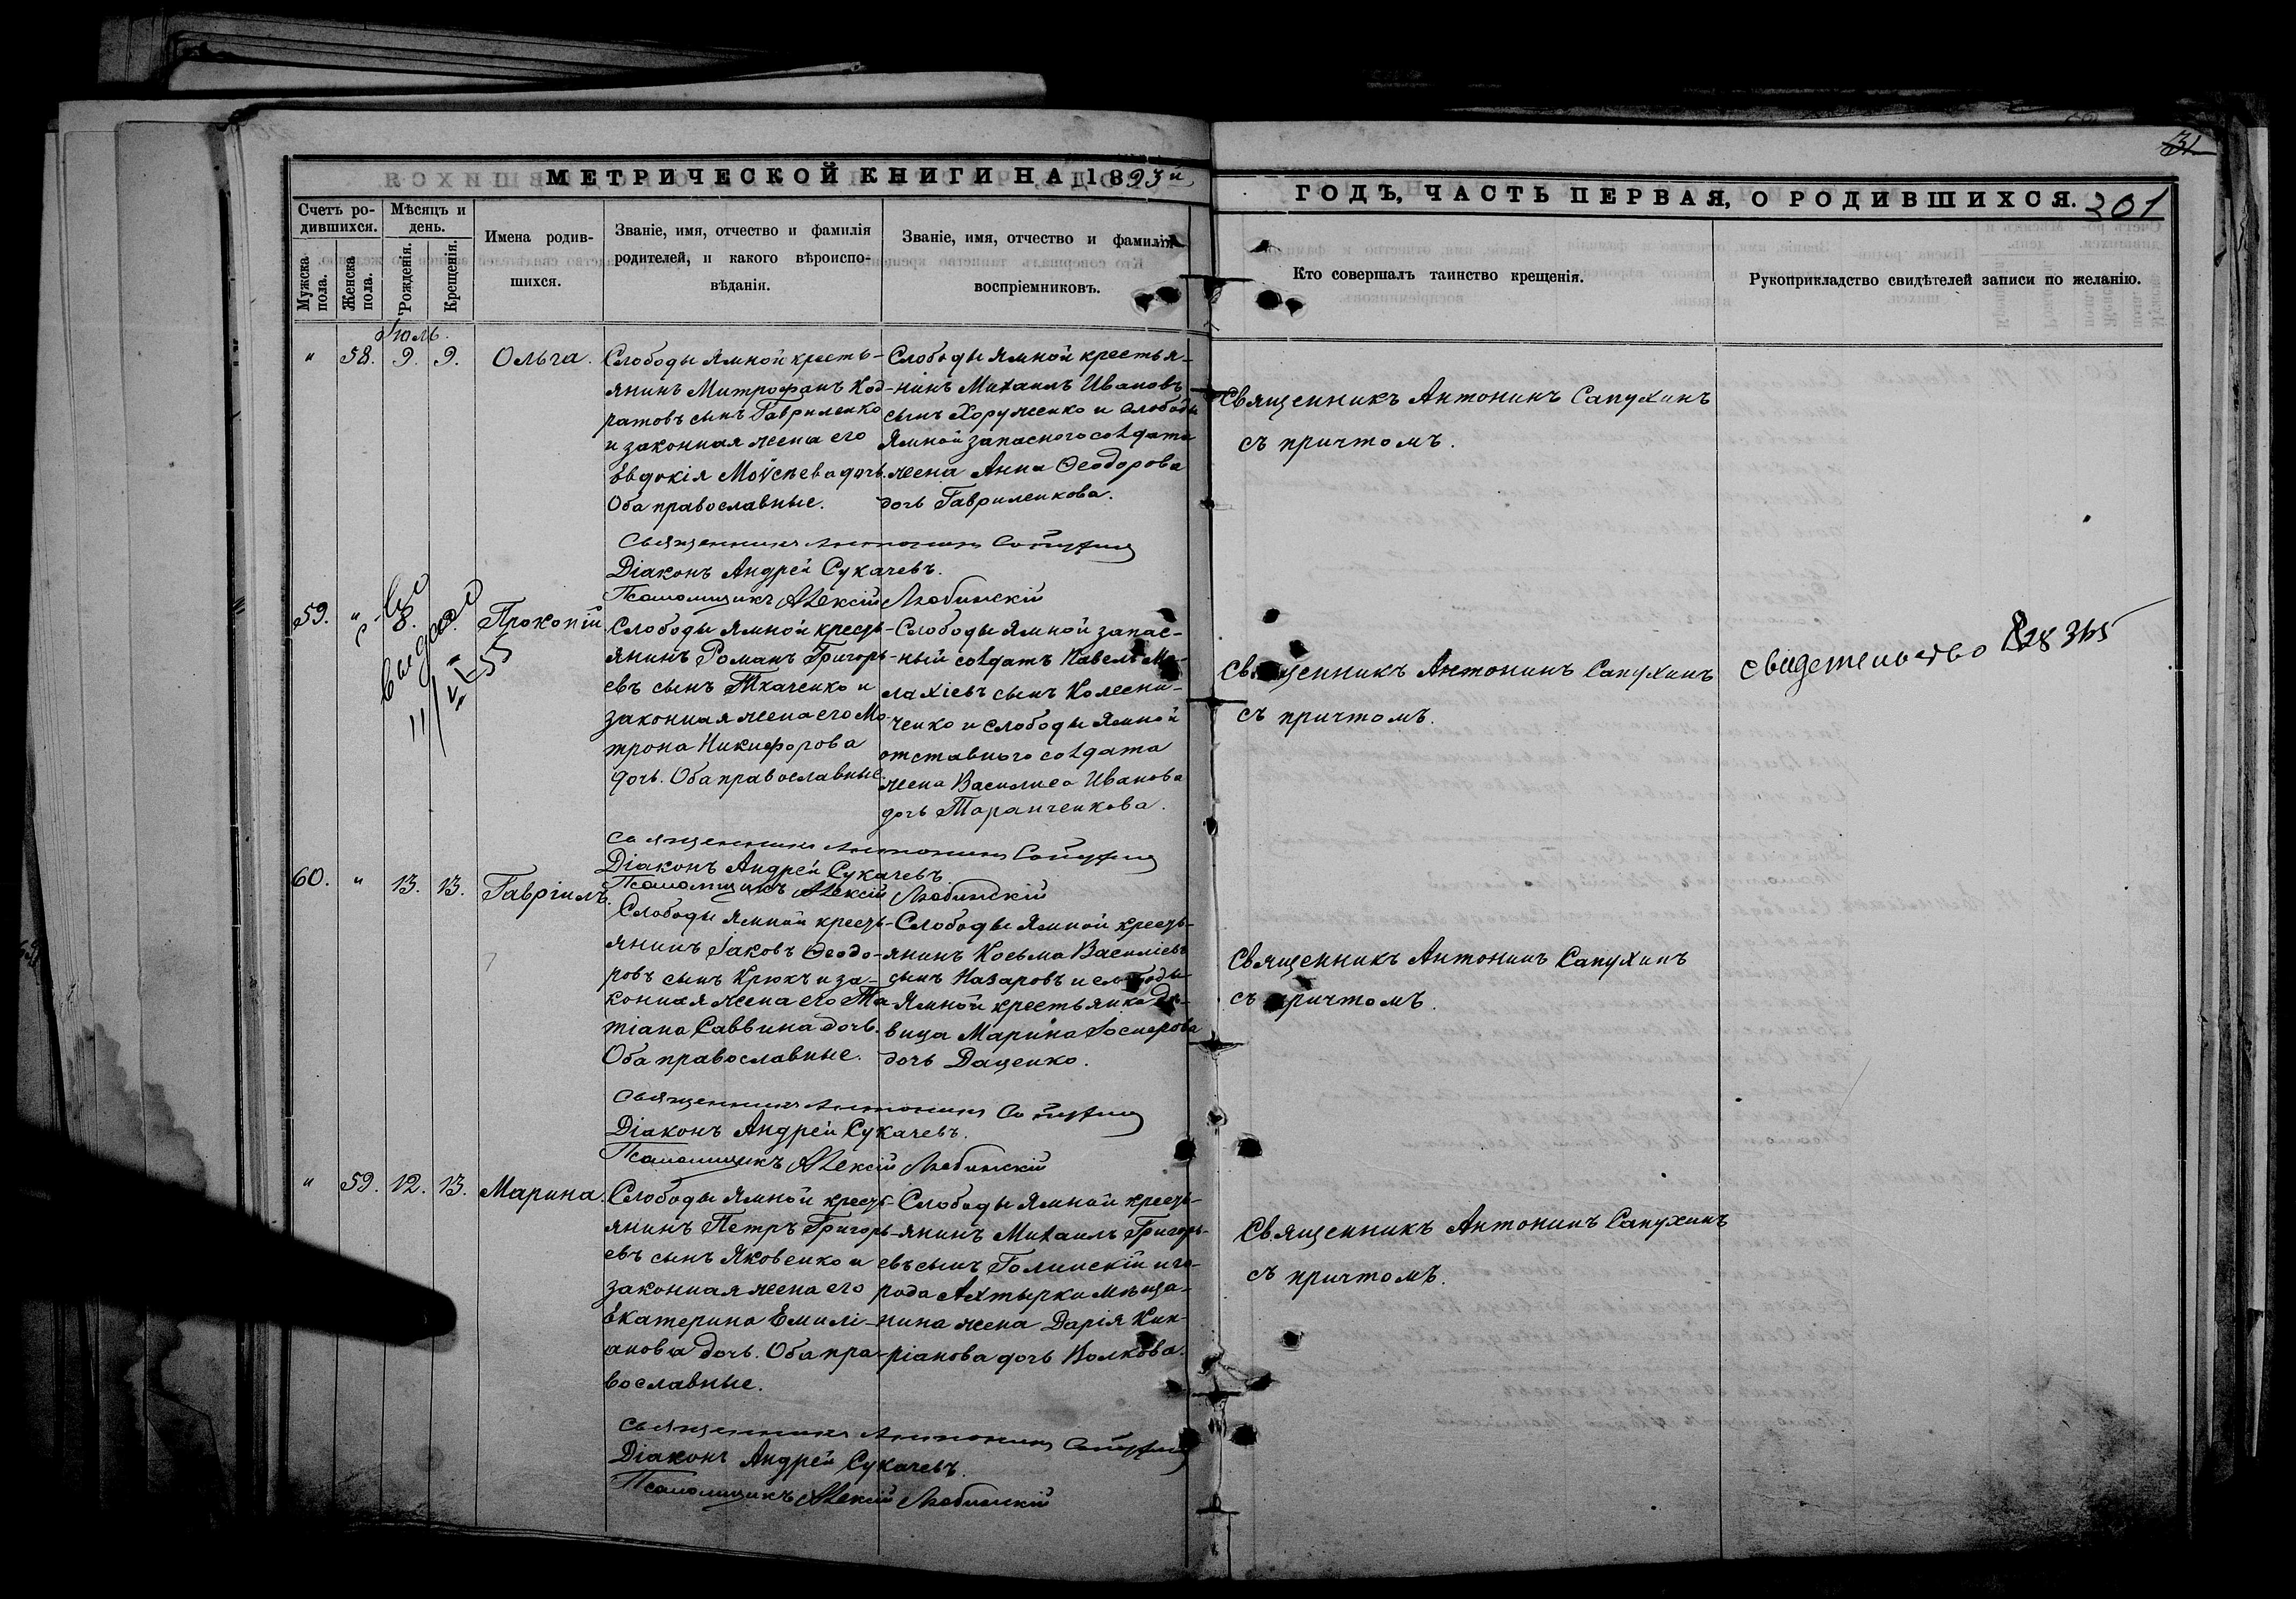 МЕТРИЧЕСКОЙ КНИГИ НА 1893й
ГОДЪ, ЧАСТЬ ПЕРВАЯ, О РОДИВШИХСЯ.
31
201
Счетъ ро-
дившихся.
Мужска
пола.
Женска
пола.
Мѣсяцъ и
день.
Рожденія.
Крещенія.
Имена родив-
шихся.
Званіе, имя, отчество и фамилія
родителей, и какого вѣроиспо-
вѣданія.
Званіе, имя, отчество и фамилія
воспріемниковъ.
Кто совершалъ таинство крещенія.
Рукоприкладство свидѣтелей записи по желанію.
Іюль.
" 58. 9. 9. Ольга.
Слободы Ямной кресть-
янинъ Митрофанъ Код-
ратовъ сынъ Гавриленко
и законная жена его
Евдокія Моѵсеева дочь.
Оба православные.
Слободы Ямной крестья-
нинъ Михаилъ Ивановъ
сынъ Хоруженко и слободы
Ямной запаснаго солдата
жена Анна Ѳеодорова
дочь Гавриленкова.
Священникъ Антонинъ Сапухинъ
съ причтомъ.
Священникъ Антонинъ Сапухинъ
Діаконъ Андрей Сукачевъ.
Псаломщикъ Алексій Любинскій
59. " 8. Прокопій
с-во
выдано
11/VI-55
Слободы Ямной кресть-
янинъ Романъ Григорь-
евъ сынъ Ткаченко и
законная жена его Ма-
трона Никифорова
дочь. Оба православные.
Слободы Ямной запас-
ный солдатъ Павелъ Ма-
лахіевъ сынъ Колесни-
ченко и слободы Ямной
отставного солдата
жена Василиса Иванова
дочь Таранченкова.
Священникъ Антонинъ Сапухинъ
съ причтомъ.
свидетельство 828365
Священникъ Антонинъ Сапухинъ
Діаконъ Андрей Сукачевъ
Псаломщикъ Алексій Любинскій
60. " 13. 13. Гавріилъ.
Слободы Ямной кресть-
янинъ Іаковъ Ѳеодо-
ровъ сынъ Крюкъ и за-
конная жена его Та
тіана Саввина дочь.
Оба православные.
Слободы Ямной кресть-
янинъ Косьма Василіевъ
сынъ Назаровъ и слободы
Ямной крестьянка дѣ-
вица Марина Іосифова
дочь Даценко.
Священникъ Антонинъ Сапухинъ
съ причтомъ.
Священникъ Антонинъ Сапухинъ
Діаконъ Андрей Сукачевъ.
Псаломщикъ Алексій Любинскій
" 59. 12. 13. Марина.
Слободы Ямной кресть-
янинъ Петръ Григорь-
евъ сынъ Яковенко и
законная жена его
Екатерина Емилі-
анова дочь. Оба пра-
вославные.
Слободы Ямной кресть-
янинъ Михаилъ Григорь-
евъ сынъ Голинскій и го-
рода Ахтырки мѣща-
нина жена Дарія Кип-
ріанова дочь Волкова.
Священникъ Антонинъ Сапухинъ
съ причтомъ.
Священникъ Антонинъ Сапухинъ
Діаконъ Андрей Сукачевъ.
Псаломщикъ Алексій Любинскій